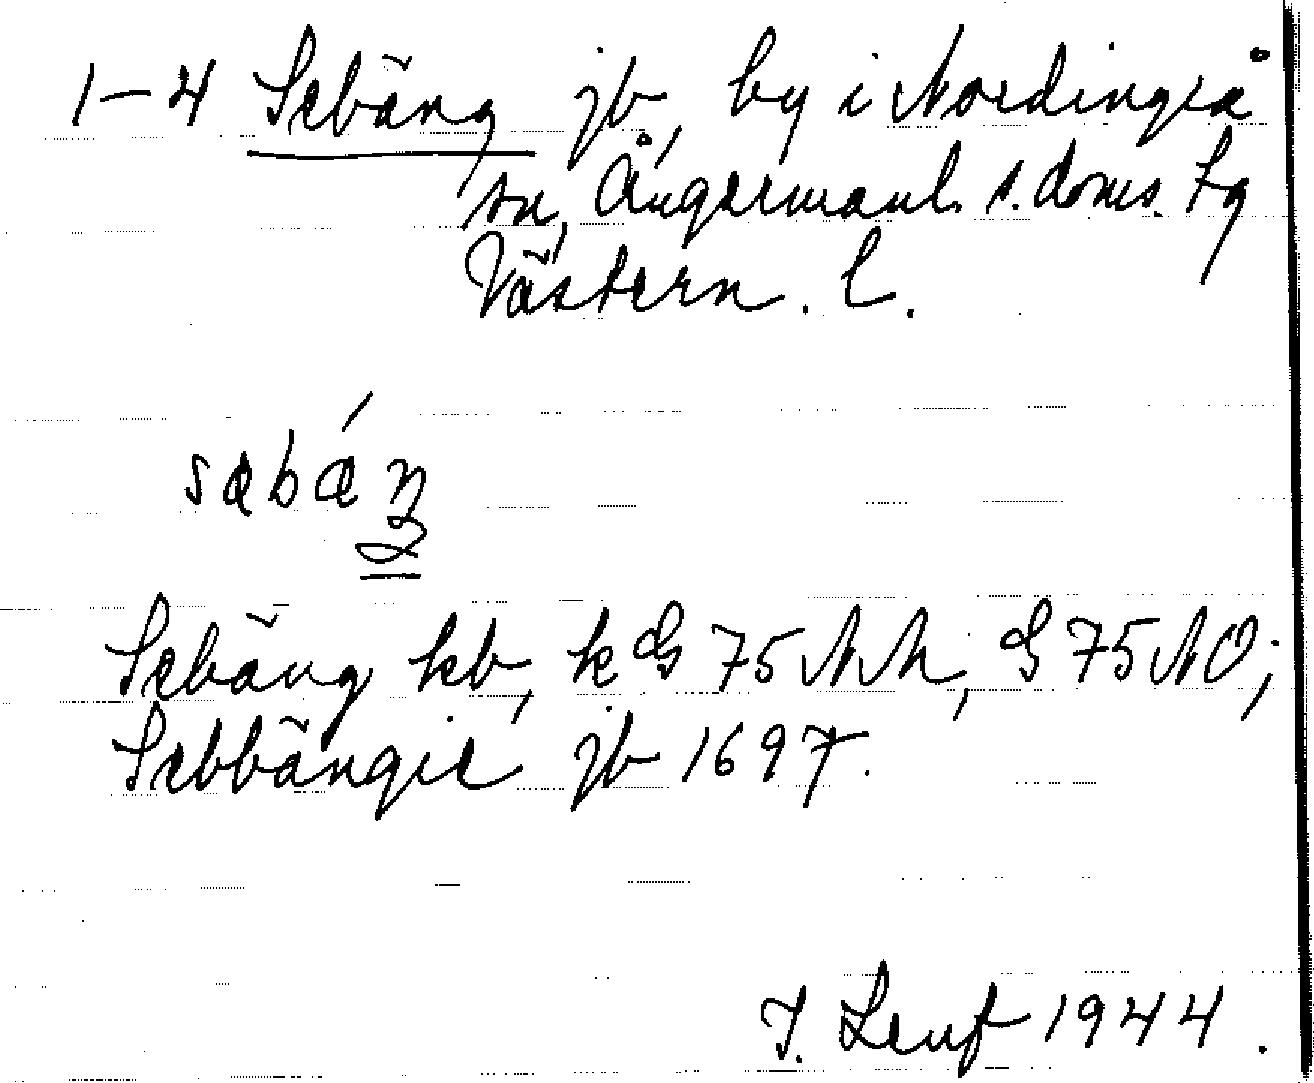 1–4 Sebäng jb, by i Nordingrå
sn, Ångermanl. s. doms. tg
Västern. l.
Sebäng kb, k G 75 NN, G 75 NO;
Sebbängie jb 1697.
J. Leuf 1944.